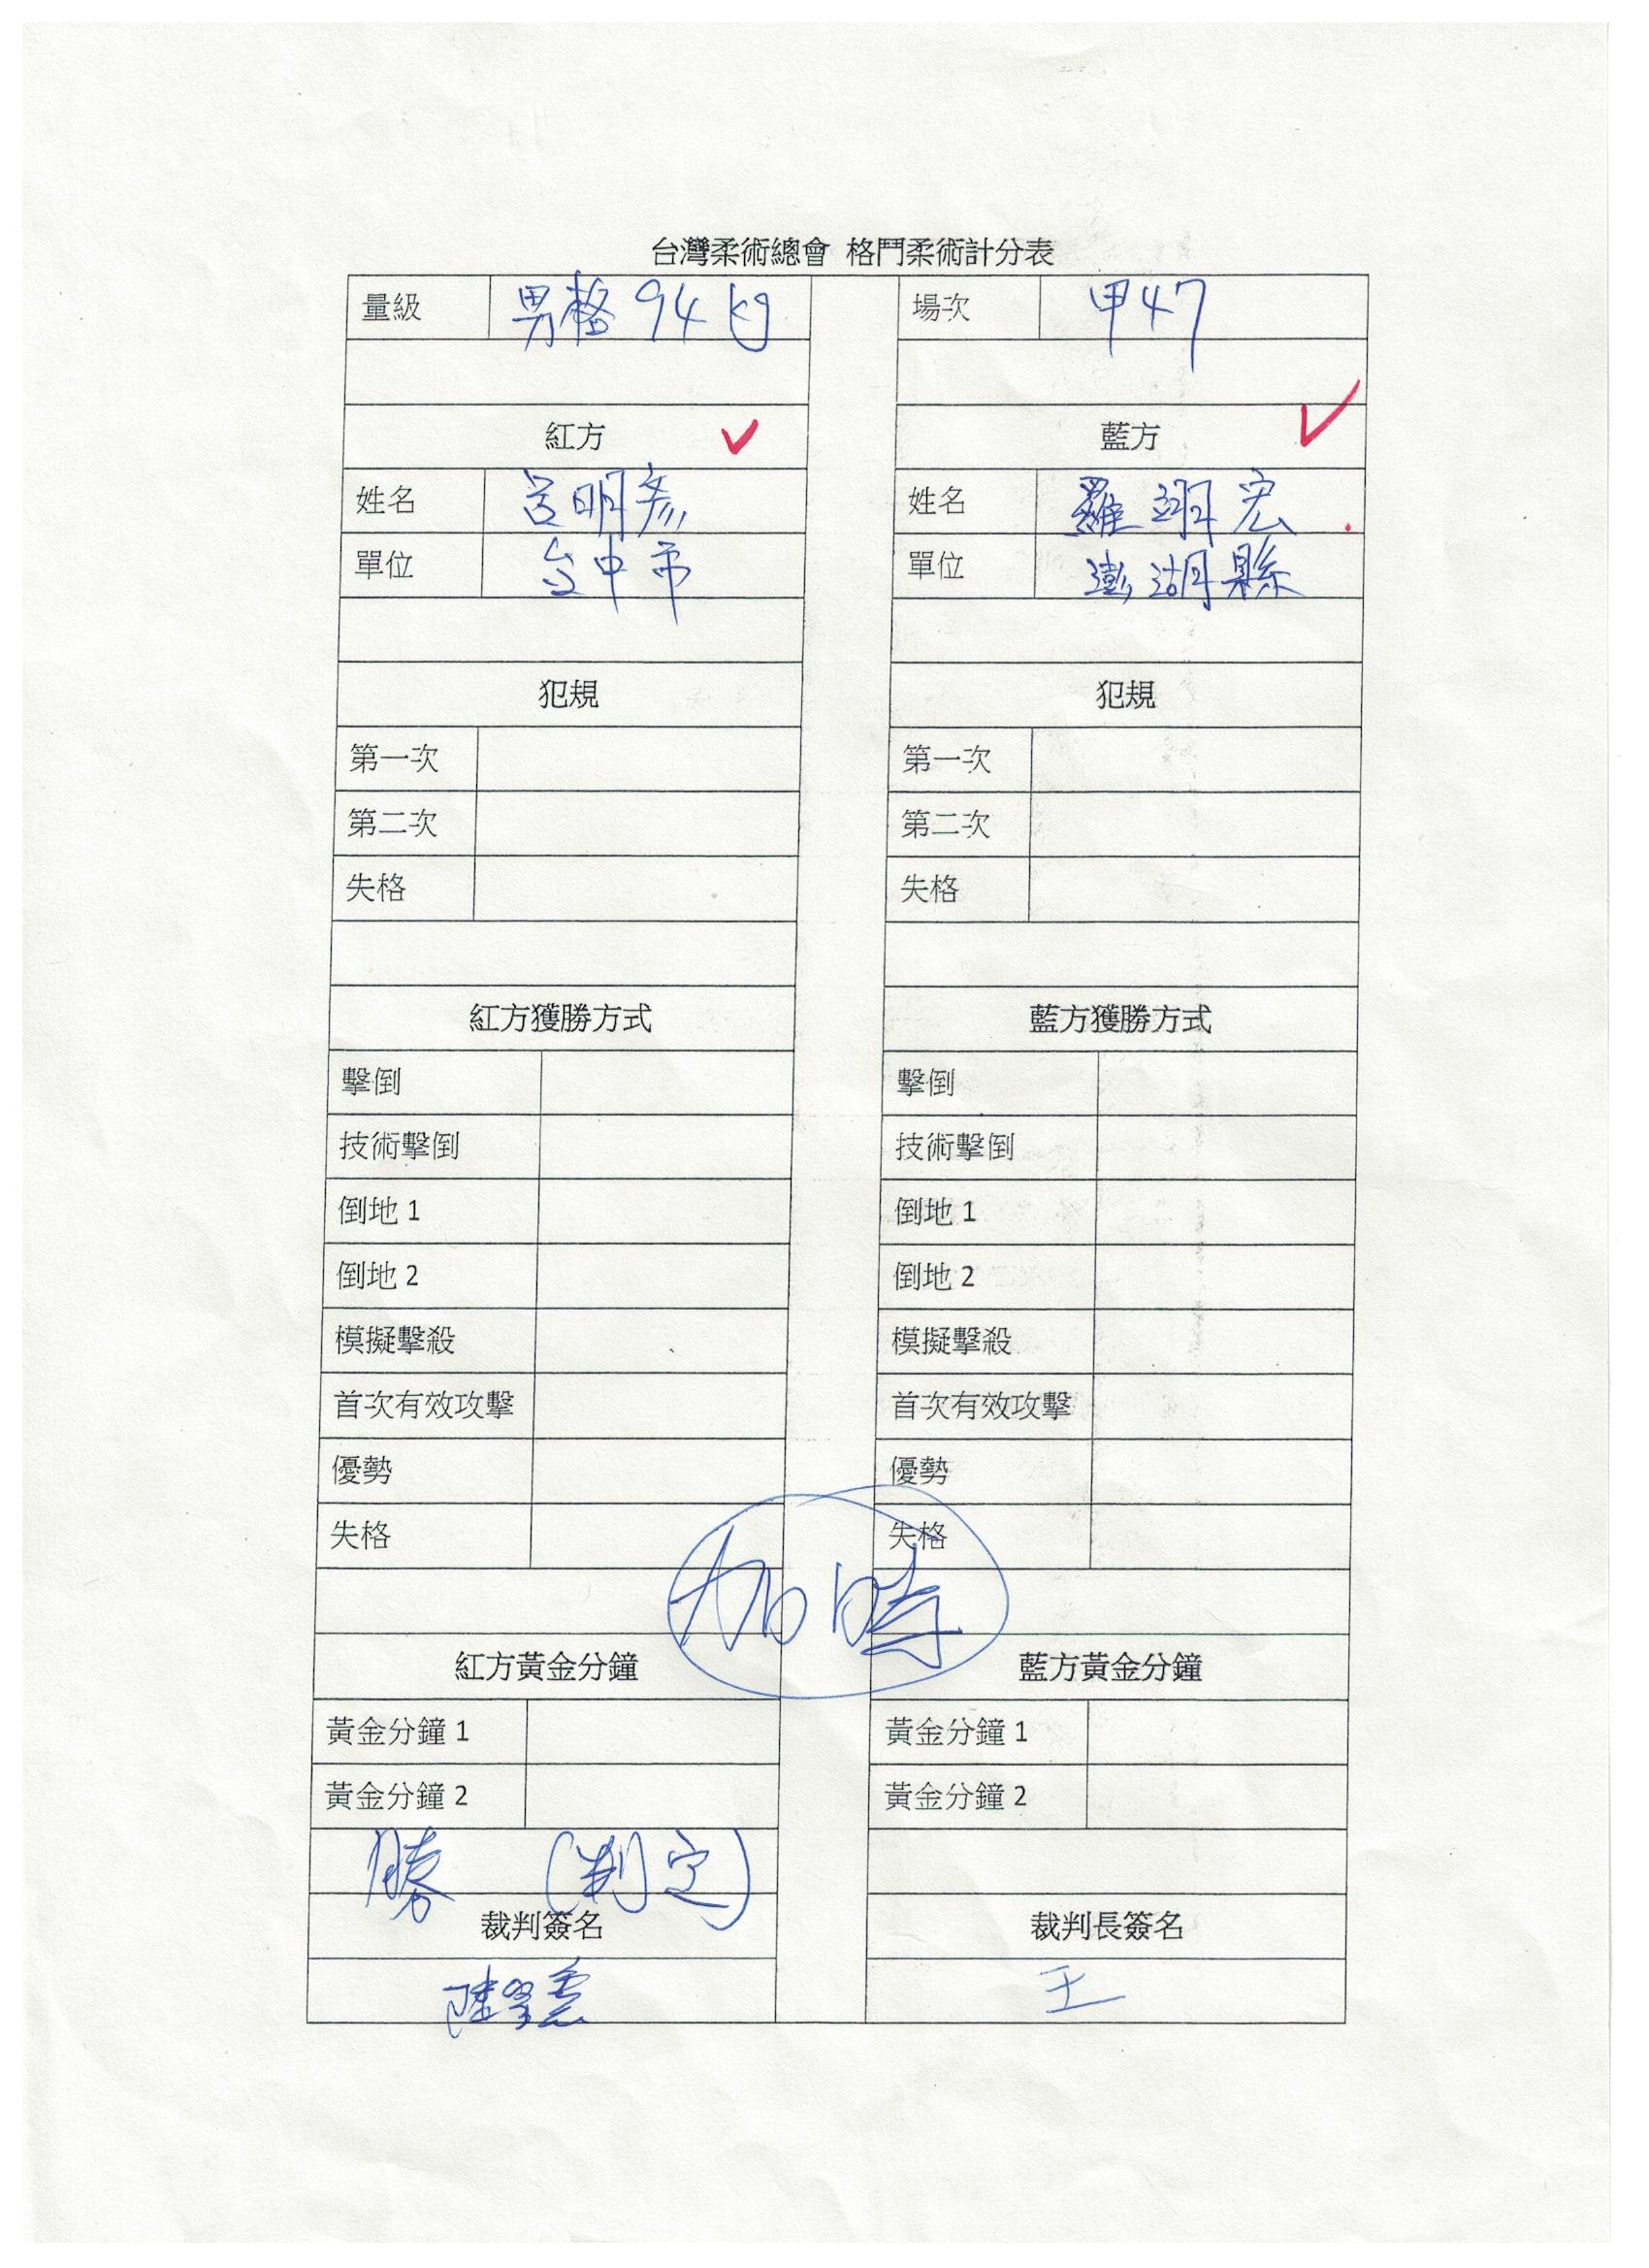 台灣柔術總會 格鬥柔術計分表
量級 男格 94 kg 場次 甲47
紅方 ✓ 藍方 ✓
姓名 呂明彥 姓名 羅翊宏
單位 台中市 單位 澎湖縣
犯規 犯規
第一次 第一次
第二次 第二次
失格 失格
紅方獲勝方式 藍方獲勝方式
擊倒 擊倒
技術擊倒 技術擊倒
倒地 1 倒地 1
倒地 2 倒地 2
模擬擊殺 模擬擊殺
首次有效攻擊 首次有效攻擊
優勢 優勢
失格 失格
加時
紅方黃金分鐘 藍方黃金分鐘
黃金分鐘 1 黃金分鐘 1
黃金分鐘 2 黃金分鐘 2
勝 (判定)
裁判簽名 裁判長簽名
王